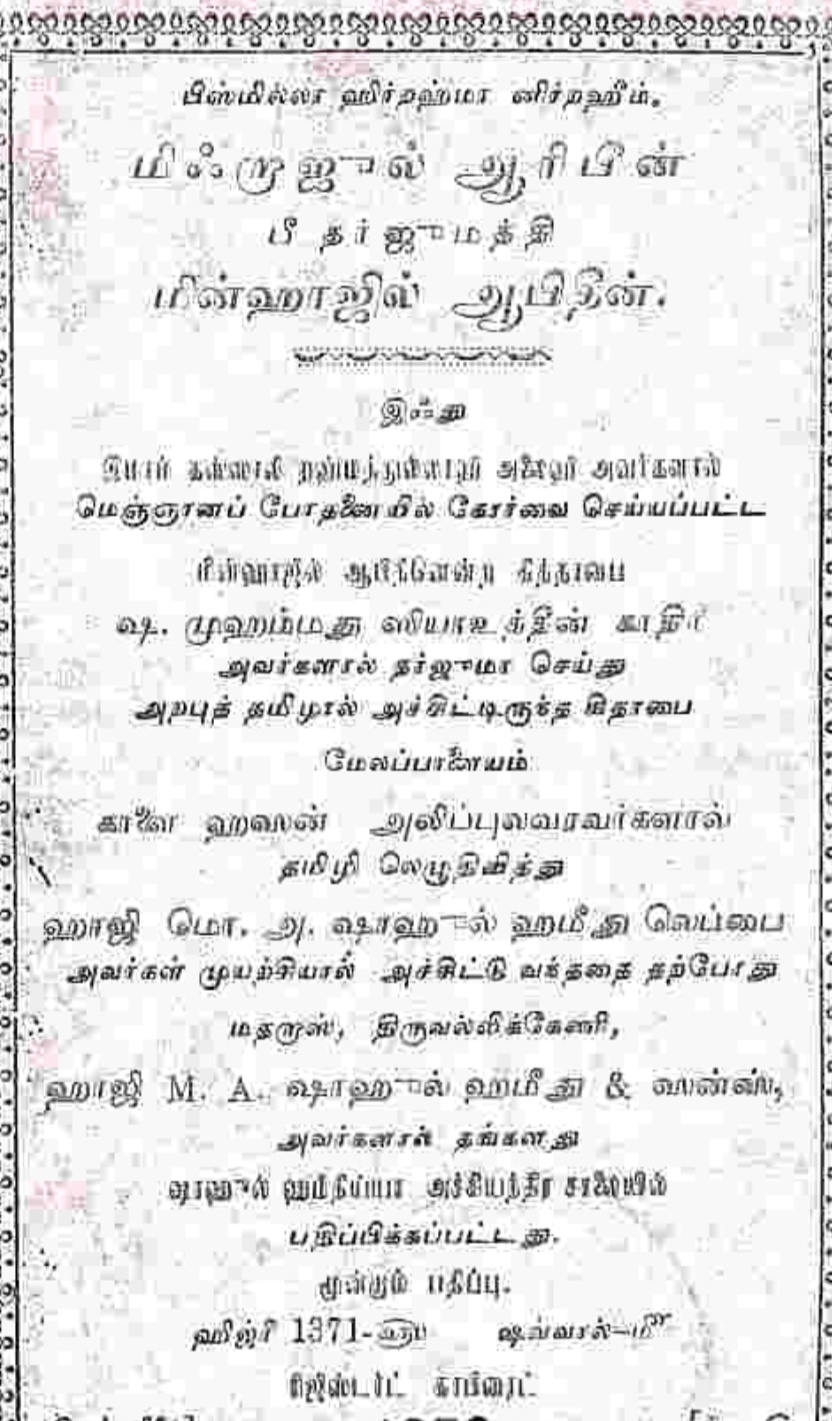 பிஸ்மில்லா ஹிர்றஹ்மா னிர்றஹீம்.
மிஃறாஜுல் ஆரிபீன்
பீ தர்ஜுமத்தி
மின்ஹாஜில் ஆபிதீன்.
இஃது
இமாம் கஸ்ஸாலி றஹ்மத்துல்லாஹி அலைஹி அவர்களால்
மெஞ்ஞானப் போதனையில் கோர்வை செய்யப்பட்ட
மின்ஹாஜில் ஆபிதீனென்ற கித்தாபை
ஷ. முஹம்மது ஸியாஉத்தீன் காதிரி
அவர்களால் தர்ஜுமா செய்து
அறபுத் தமிழால் அச்சிட்டிருந்த கிதாபை
மேலப்பாளையம்
காளை ஹஸன் அலிப்புலவரவர்களால்
தமிழி லெழுதிவித்து
ஹாஜி மொ. அ. ஷாஹுல் ஹமீது லெப்பை
அவர்கள் முயற்சியால் அச்சிட்டு வந்ததை தற்போது
மதறாஸ், திருவல்லிக்கேணி,
ஹாஜி M. A. ஷாஹுல் ஹமீது & ஸன்ஸ்,
அவர்களால் தங்களது
ஷாஹுல் ஹமீதிய்யா அச்சியந்திர சாலையில்
பதிப்பிக்கப்பட்டது.
மூன்றாம் பதிப்பு.
ஹிஜ்ரி 1371-௵ ஷவ்வால்-௴
ரிஜிஸ்டர்ட் காபிரைட்